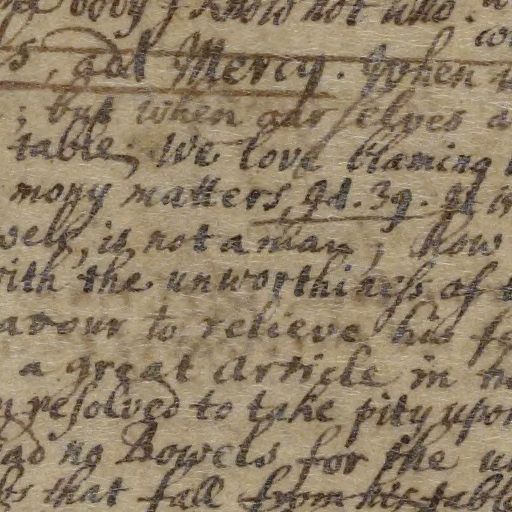 body I know not who.
s, and Mercy. When
; but when our selves a
table; We love blaming
mony matters, 9d. 39. It i
well, is not a man; how
with the unworthiness of t
avour to relieve his fe
a great Article in th
n resolved to take pity upon
ad no Bowels for the un
bs that fall from his table